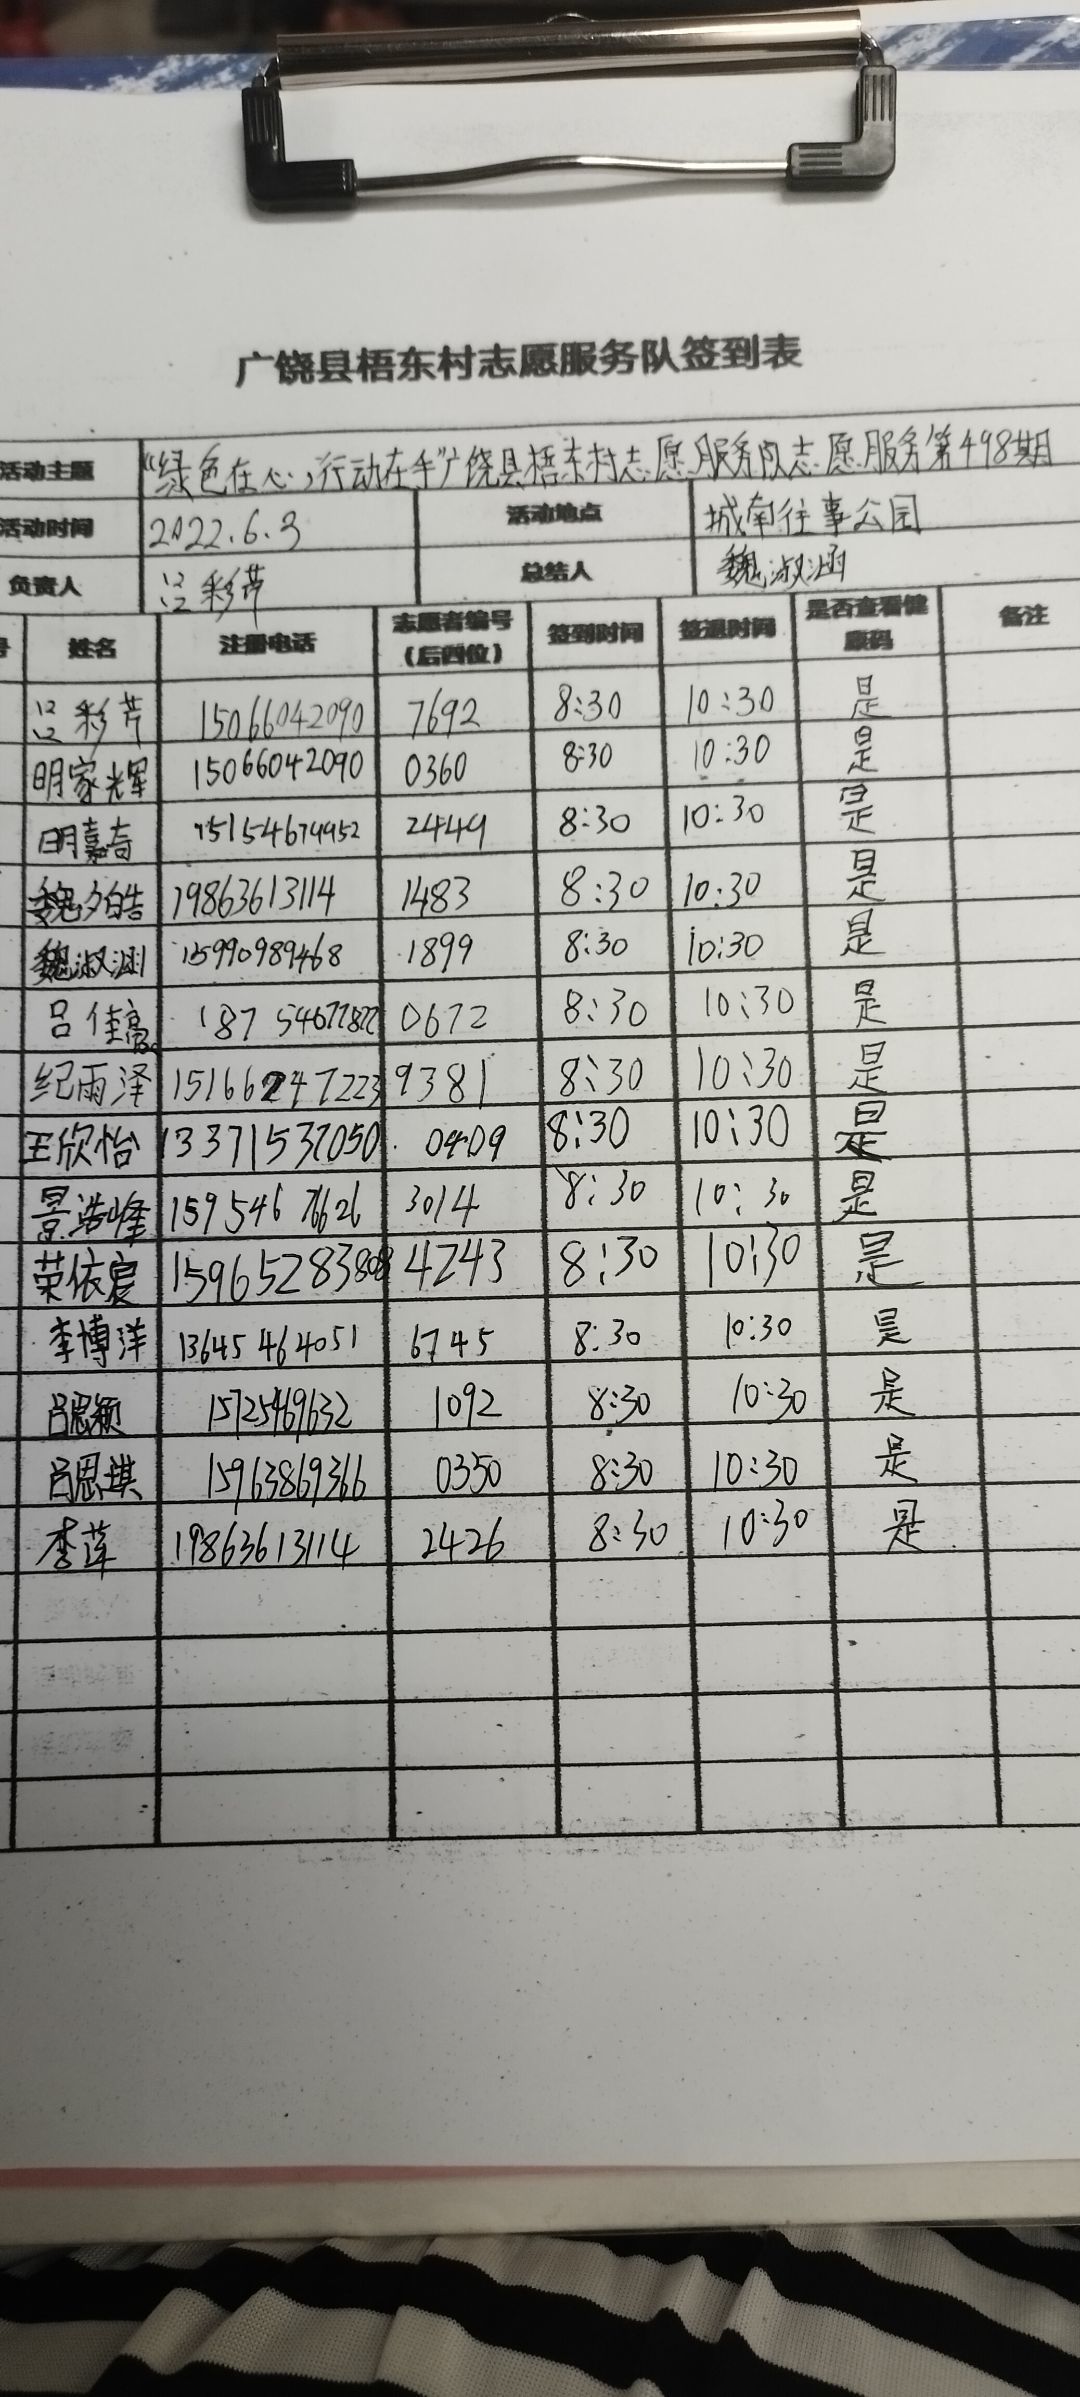 广饶县梧东村志愿服务队签到表
活动主题 "绿色在心,行动在手"广饶县梧东村志愿服务队志愿服务第498期
活动时间 2022.6.3 活动地点 城南往事公园
负责人 吕彩芹 总结人 魏淑涵
号 姓名 注册电话 志愿者编号(后四位) 签到时间 签退时间 是否查看健康码 备注
吕彩芹 15066042090 7692 8:30 10:30 是
明家辉 15066042090 0360 8:30 10:30 是
明嘉奇 15154679952 2449 8:30 10:30 是
魏夕皓 19863613114 1483 8:30 10:30 是
魏淑涵 15990989468 1899 8:30 10:30 是
吕佳高 0672 8:30 10:30 是
纪雨泽 9381 8:30 10:30 是
王欣怡 13371537050 0409 8:30 10:30 是
景浩峰 3014 8:30 10:30 是
荣依宸 4243 8:30 10:30 是
李博洋 13645464051 6745 8:30 10:30 是
吕思颖 15725469632 1092 8:30 10:30 是
吕思琪 15963869366 0350 8:30 10:30 是
李莲 19863613114 2426 8:30 10:30 是